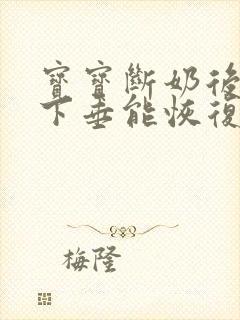 寶寶斷奶後
下垂能恢復
梅隆